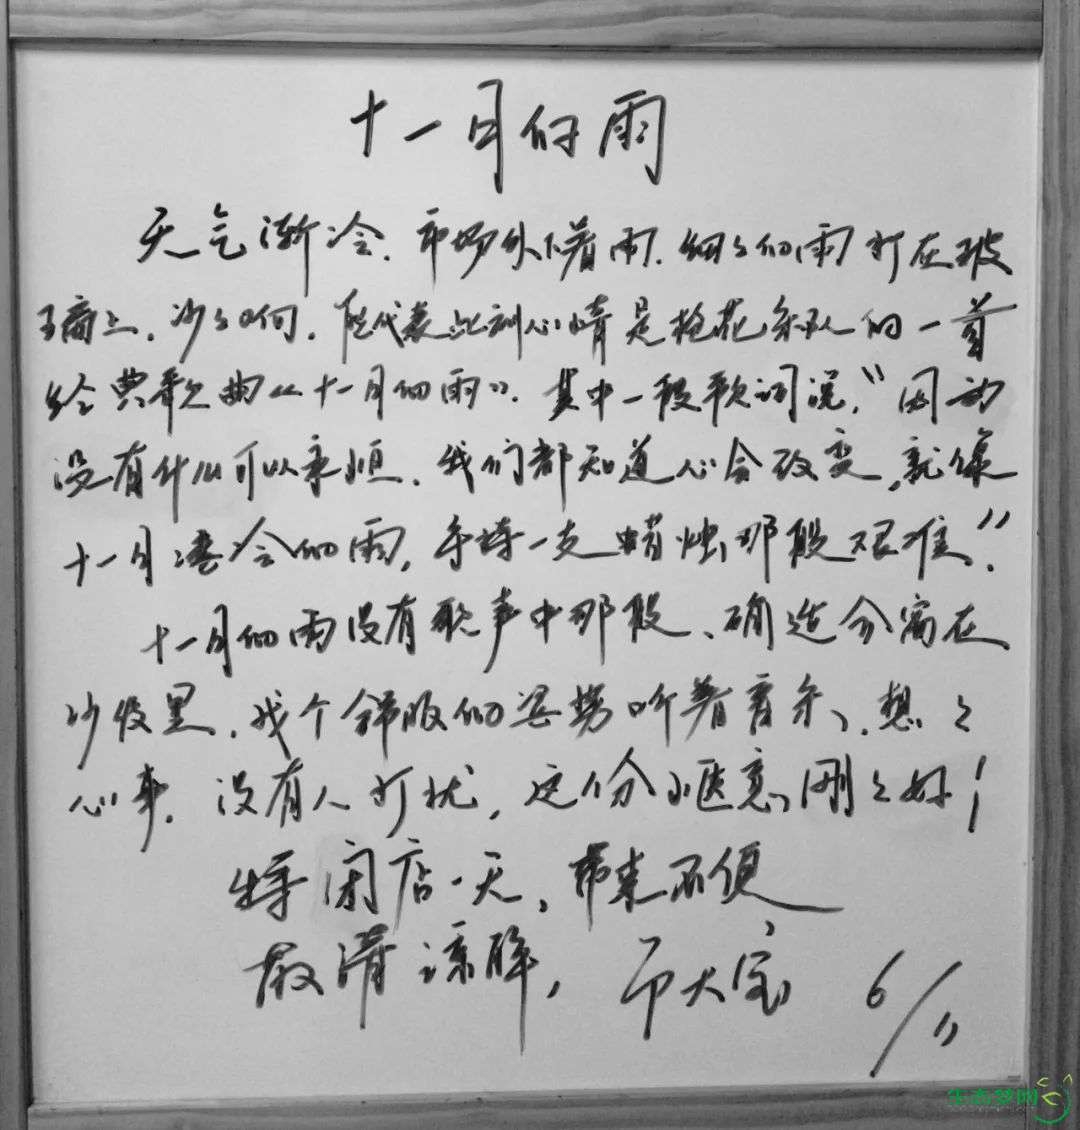 十一月的雨
天气渐冷. 市场外下着雨. 细々的雨打在玻
璃上. 沙々响. 能代表此刻心情是枪花乐队的一首
经典歌曲《十一月的雨》. 其中一段歌词说, "因为
没有什么可以永恒. 我们都知道心会改变, 就像
十一月凄冷的雨, 手持一支蜡烛, 那般艰难."
十一月的雨没有歌声中那般、确适合窝在
沙发里. 找个舒服的姿势听着音乐、想々
心事. 没有人打扰, 这份惬意、刚々好!
特闭店一天, 带来不便
敬请谅解, 大宝 6/11
生态梦网